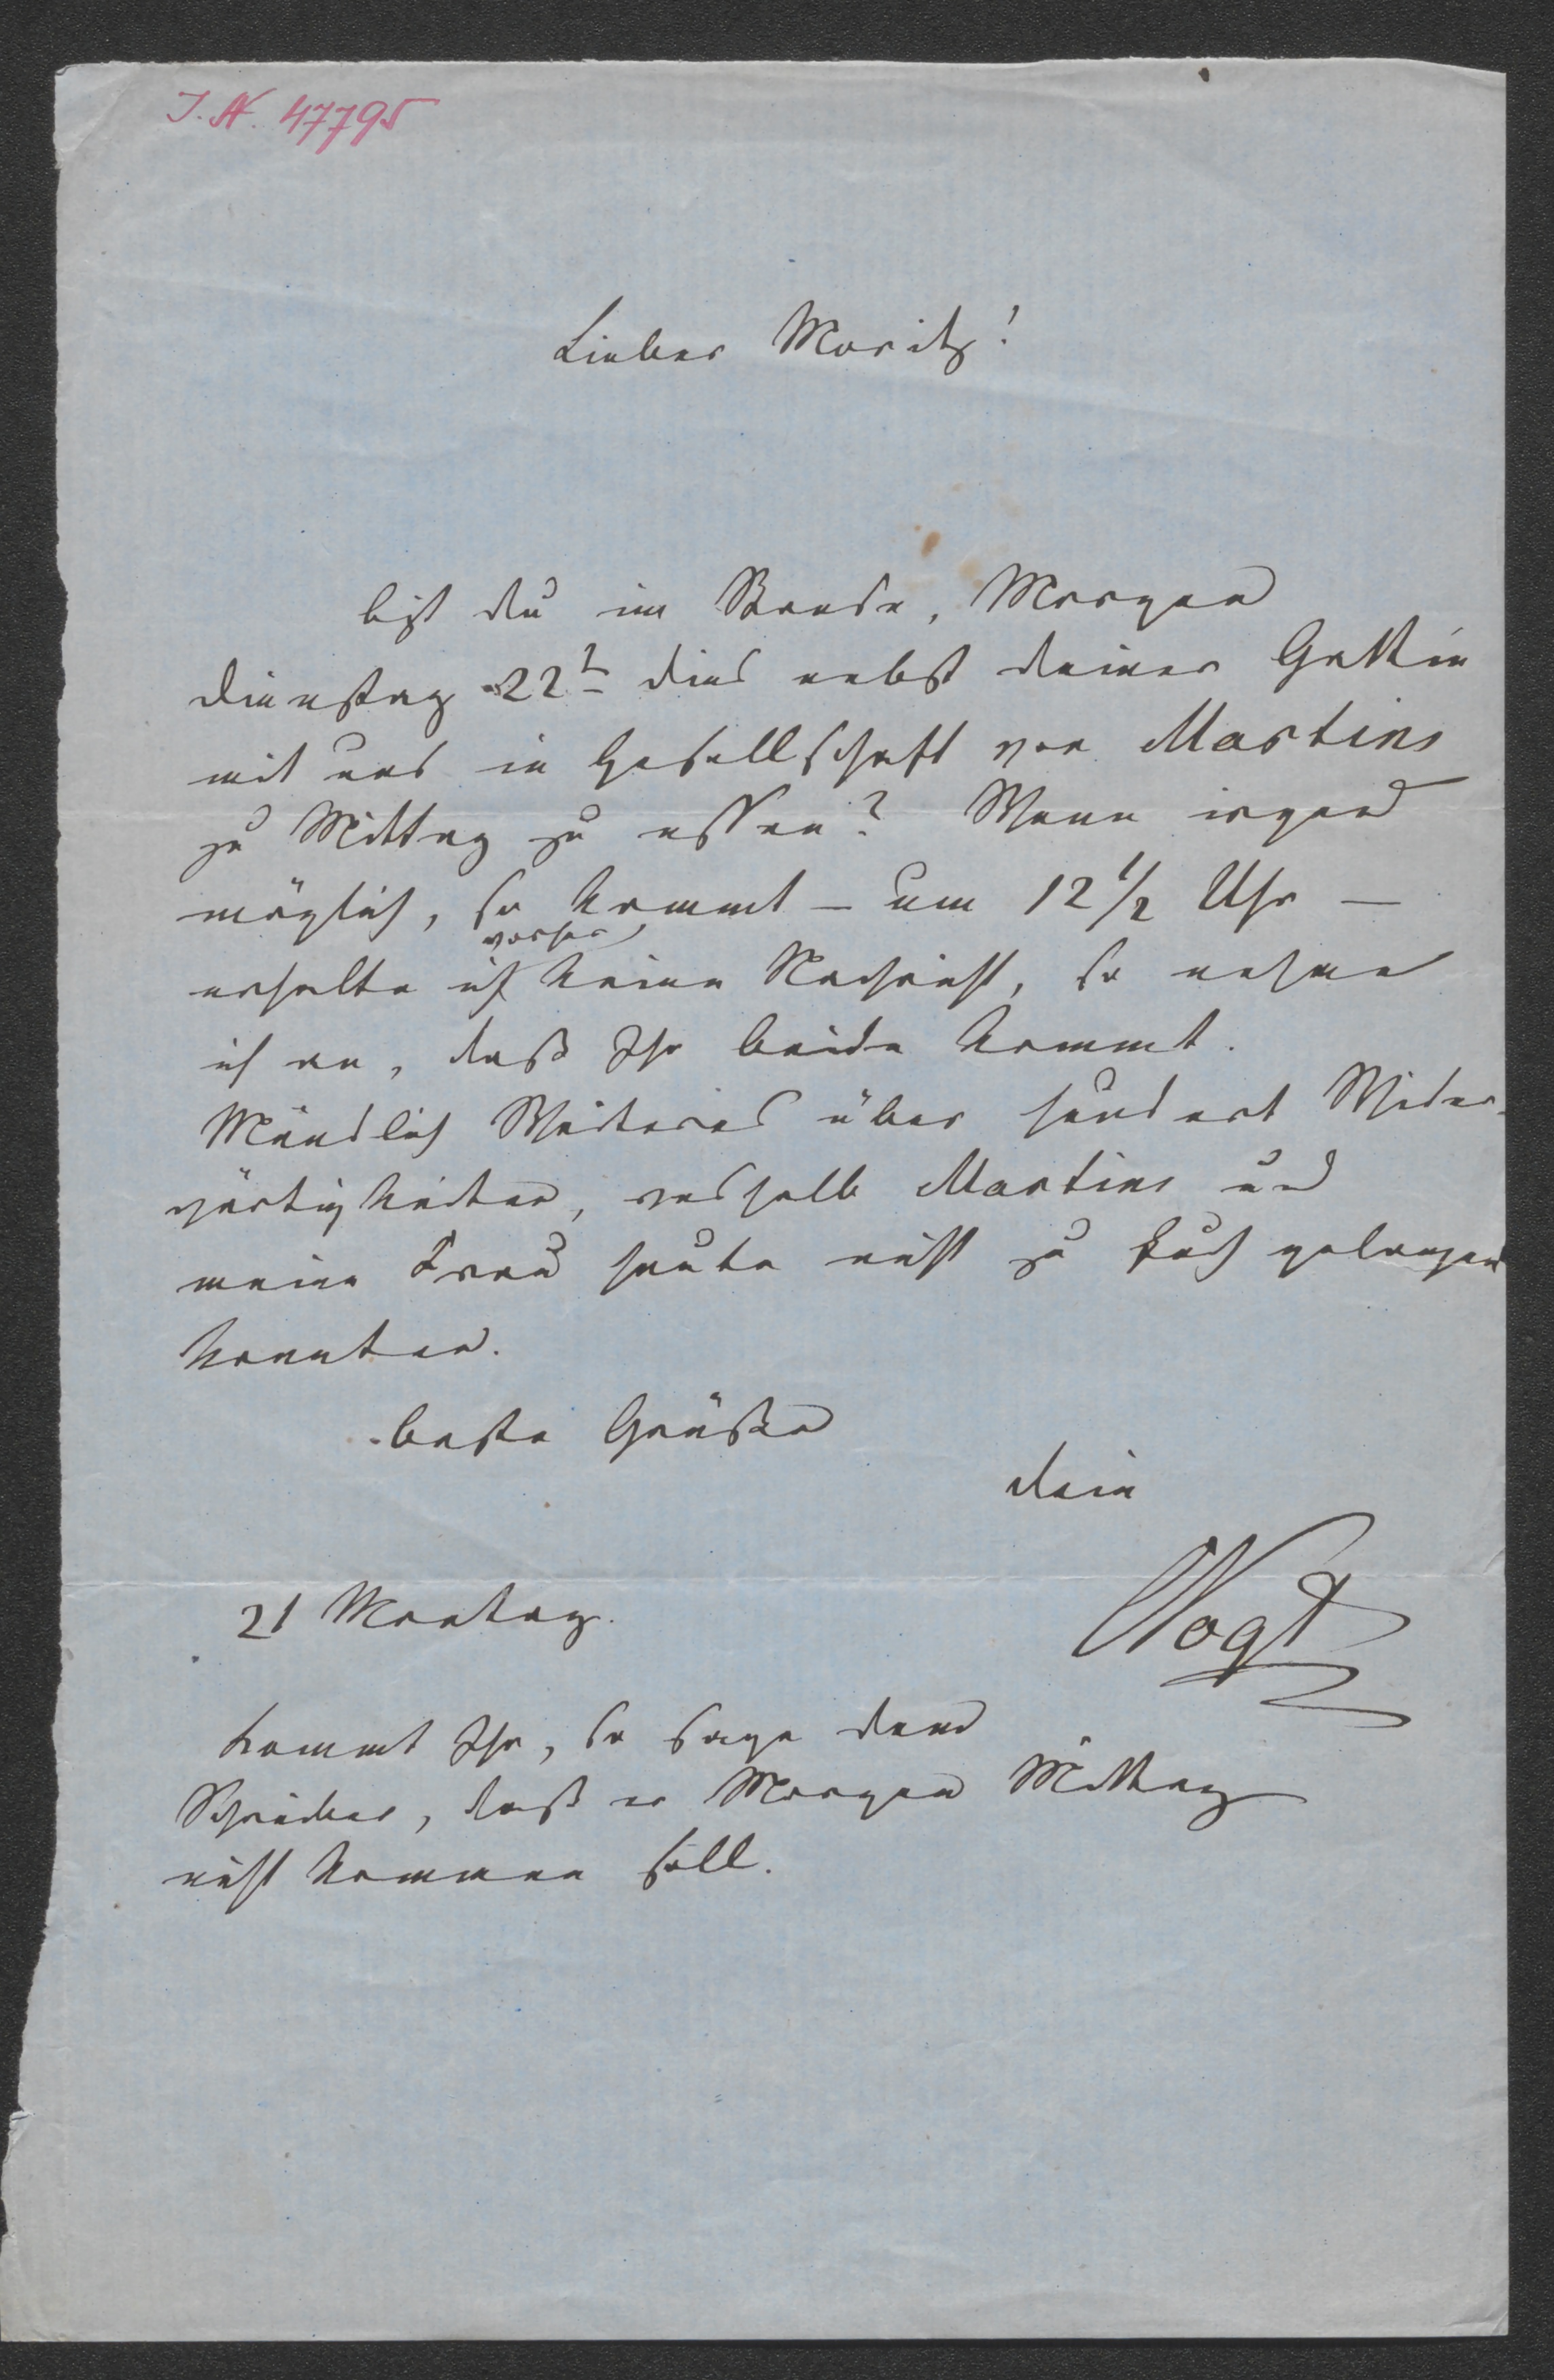 I. N. 47795
Lieber Moritz!
bist du im Stande, Morgen
Dienstag 22t dies nebst deiner Gattin
mit uns in Gesellschaft von Martins
zu Mittag zu essen? Wenn irgend
möglich, so kommt – um 12 1/2 Uhr –
vorher
erhalte ich keine Nachricht, so nehme
ich an, daß Ihr beide kommt.
Mündlich Weiteres über hundert Wider-
wärtigkeiten, weshalb Martins und
meine Frau heute nicht zu Euch gelangen
konnten.
beste Grüße
dein
Vogt
21 Montag.
kommt Ihr, so sage dem
Schreiber, daß er Morgen Mittag
nicht kommen soll.